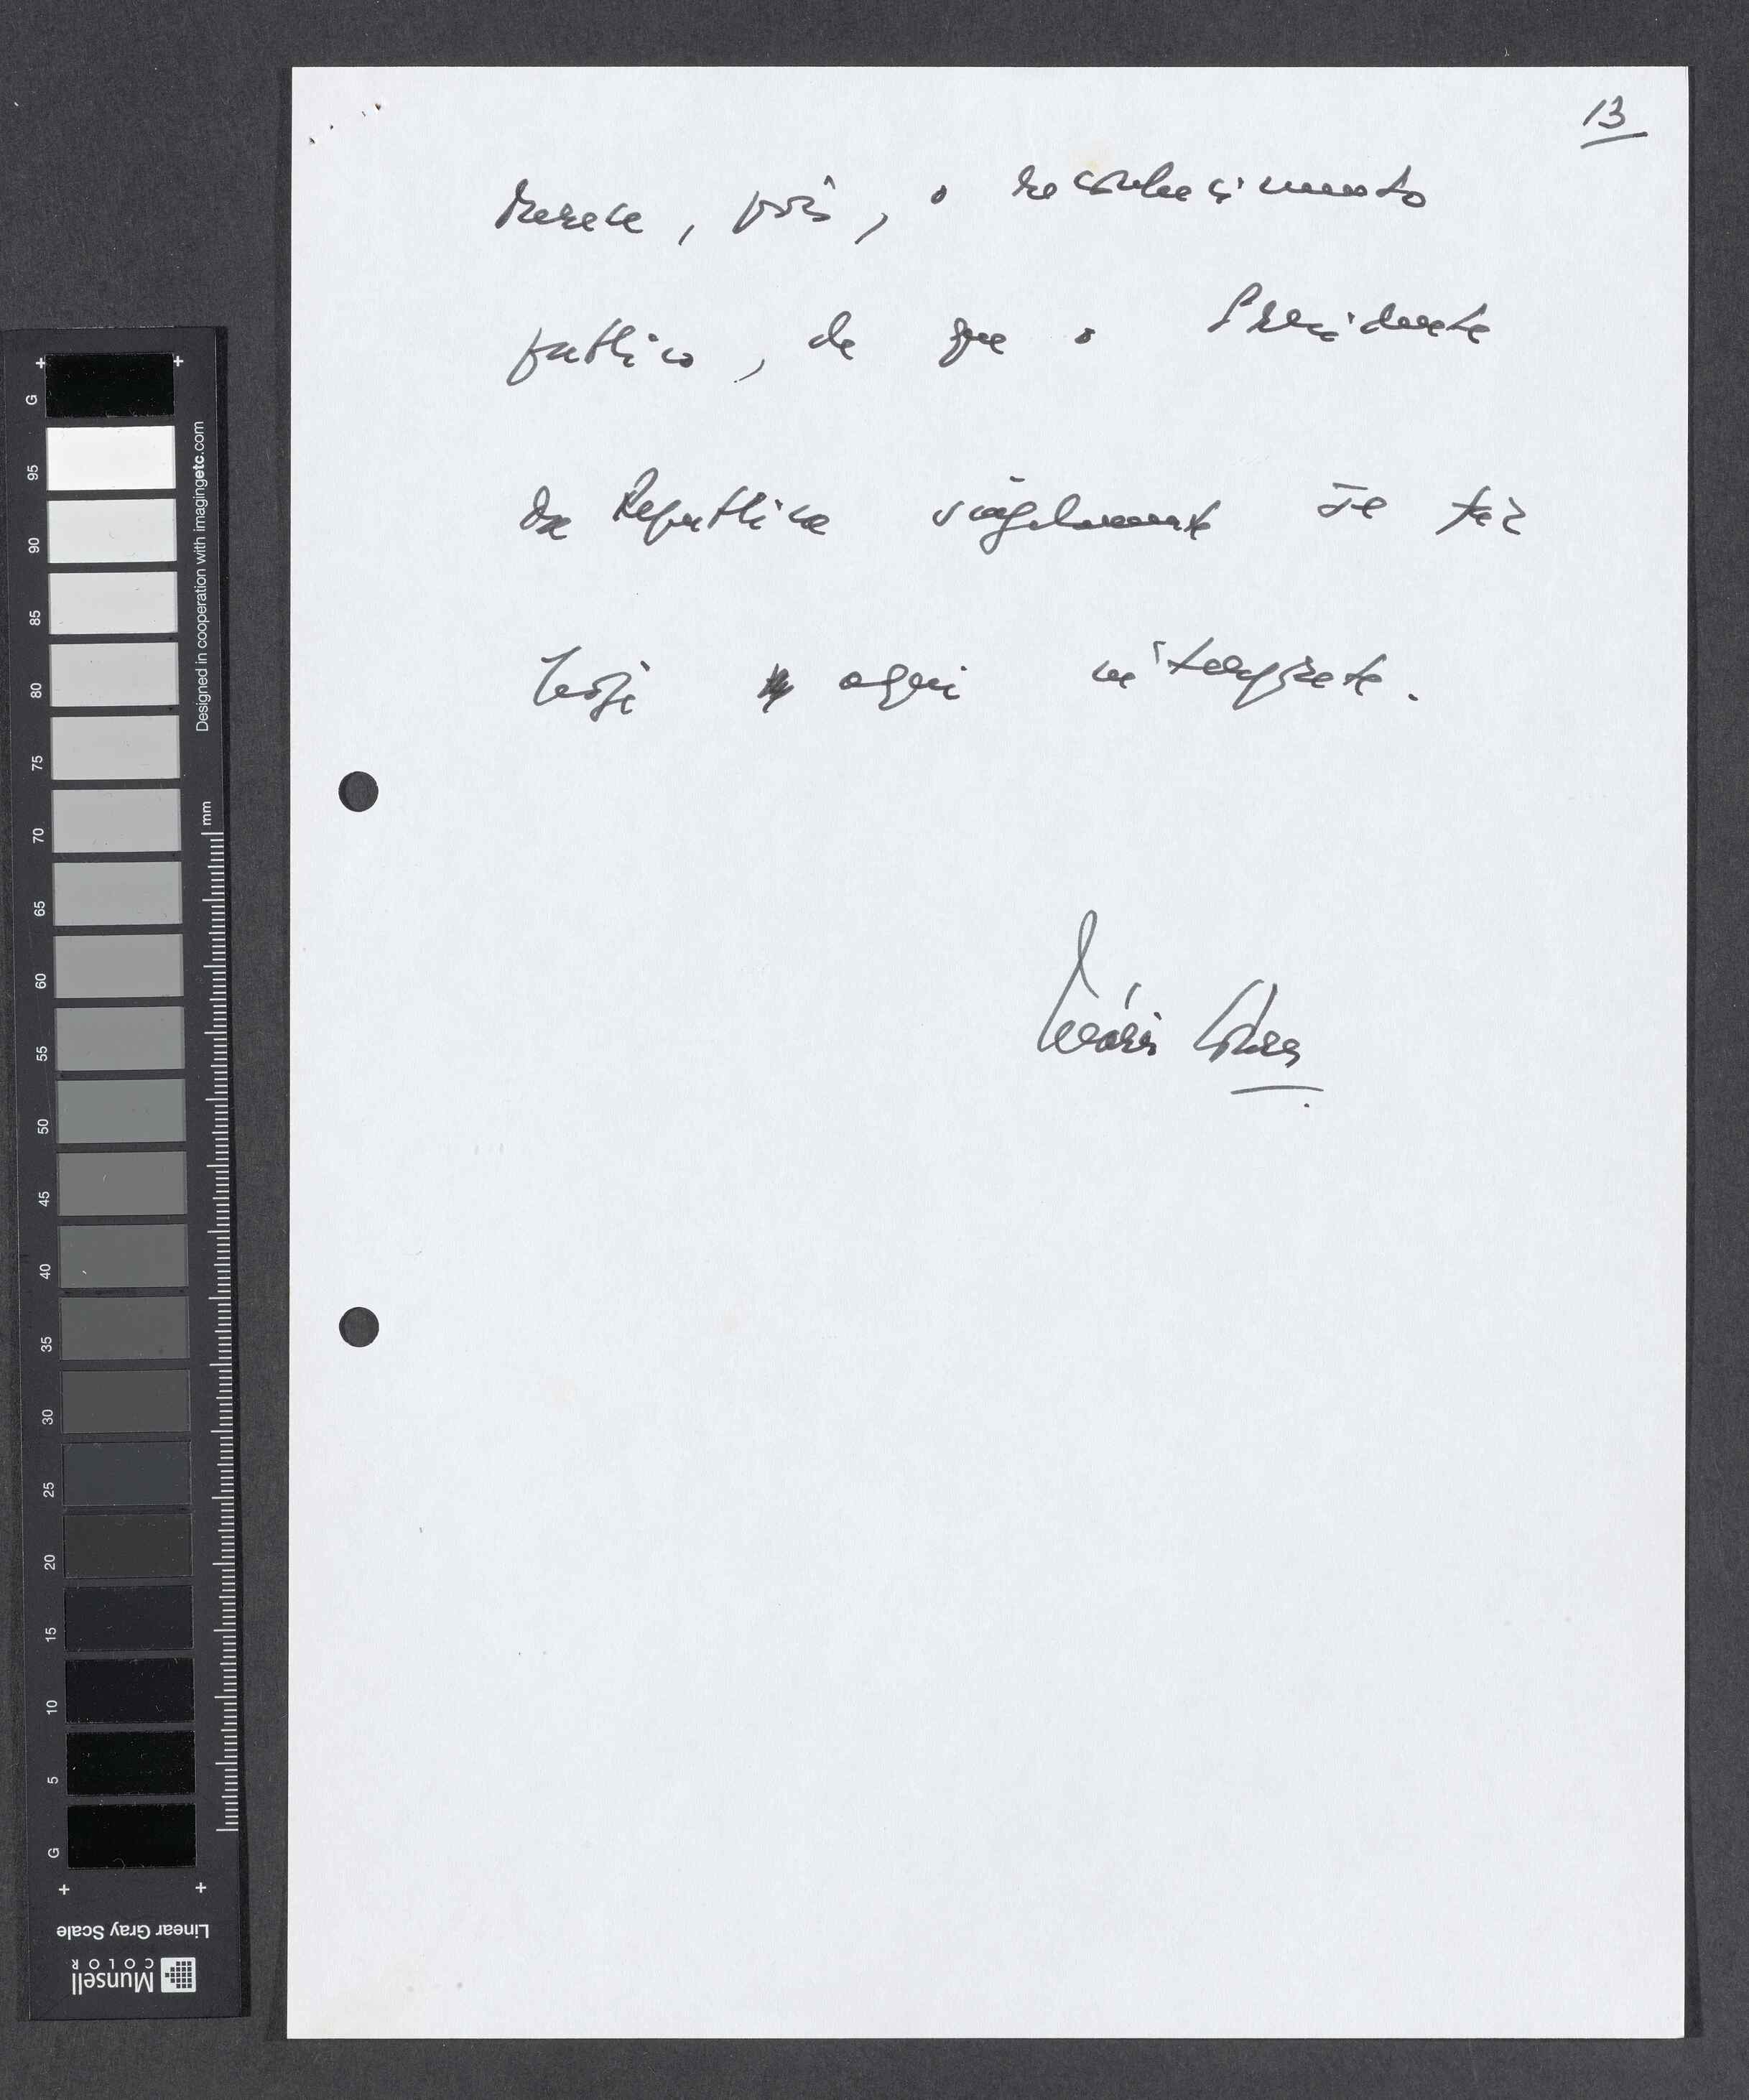 13
Merece, pois, o reconhecimento
publico, de que o Presidente
da Republica singelamente se fêz
hoje aqui intérprete.
Mário Soares
G
95
90
85
80
75
70
65
60
55
50
45
40
35
30
25
20
15
10
5
G
Designed in cooperation with imagingetc.com
mm
Linear Gray Scale
Munsell
COLOR